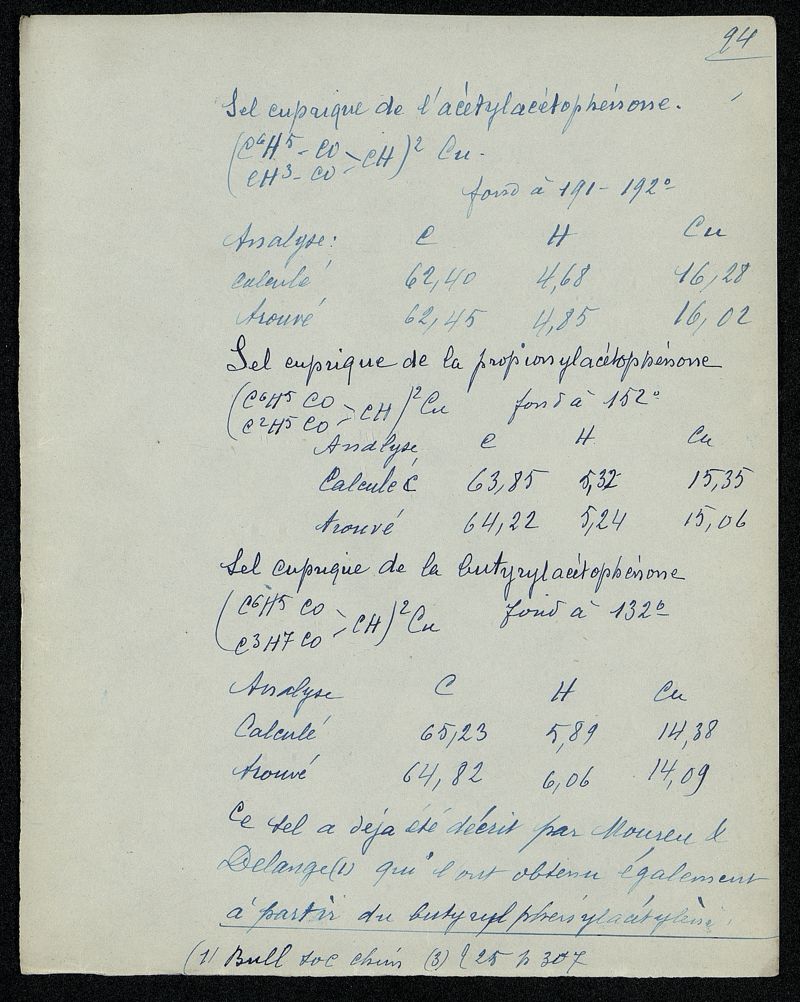 94
Sel cuprique de l'acétylacétophénone.
(C⁶H⁵ - CO
CH³ - CO > CH)² Cu.
fond à 191 - 192°
Analyse: C H Cu
Calculé 62,40 4,68 16,28
Trouvé 62,45 4,85 16,02
Sel cuprique de la propionylacétophénone
(C⁶H⁵ CO
C²H⁵ CO > CH)² Cu fond à 152°
Analyse C H Cu
Calculé 63,85 5,32 15,35
Trouvé 64,22 5,24 15,06
Sel cuprique de la butyrylacétophénone
(C⁶H⁵ CO
C³H⁷ CO > CH)² Cu fond à 132°
Analyse C H Cu
Calculé 65,23 5,89 14,38
Trouvé 64,82 6,06 14,09
Ce sel a déja été décrit par Moureu &
Delange (1) qui l'ont obtenu également
à partir du butyryl phénylacétylène.
(1) Bull soc chim (3) t 25 p 307